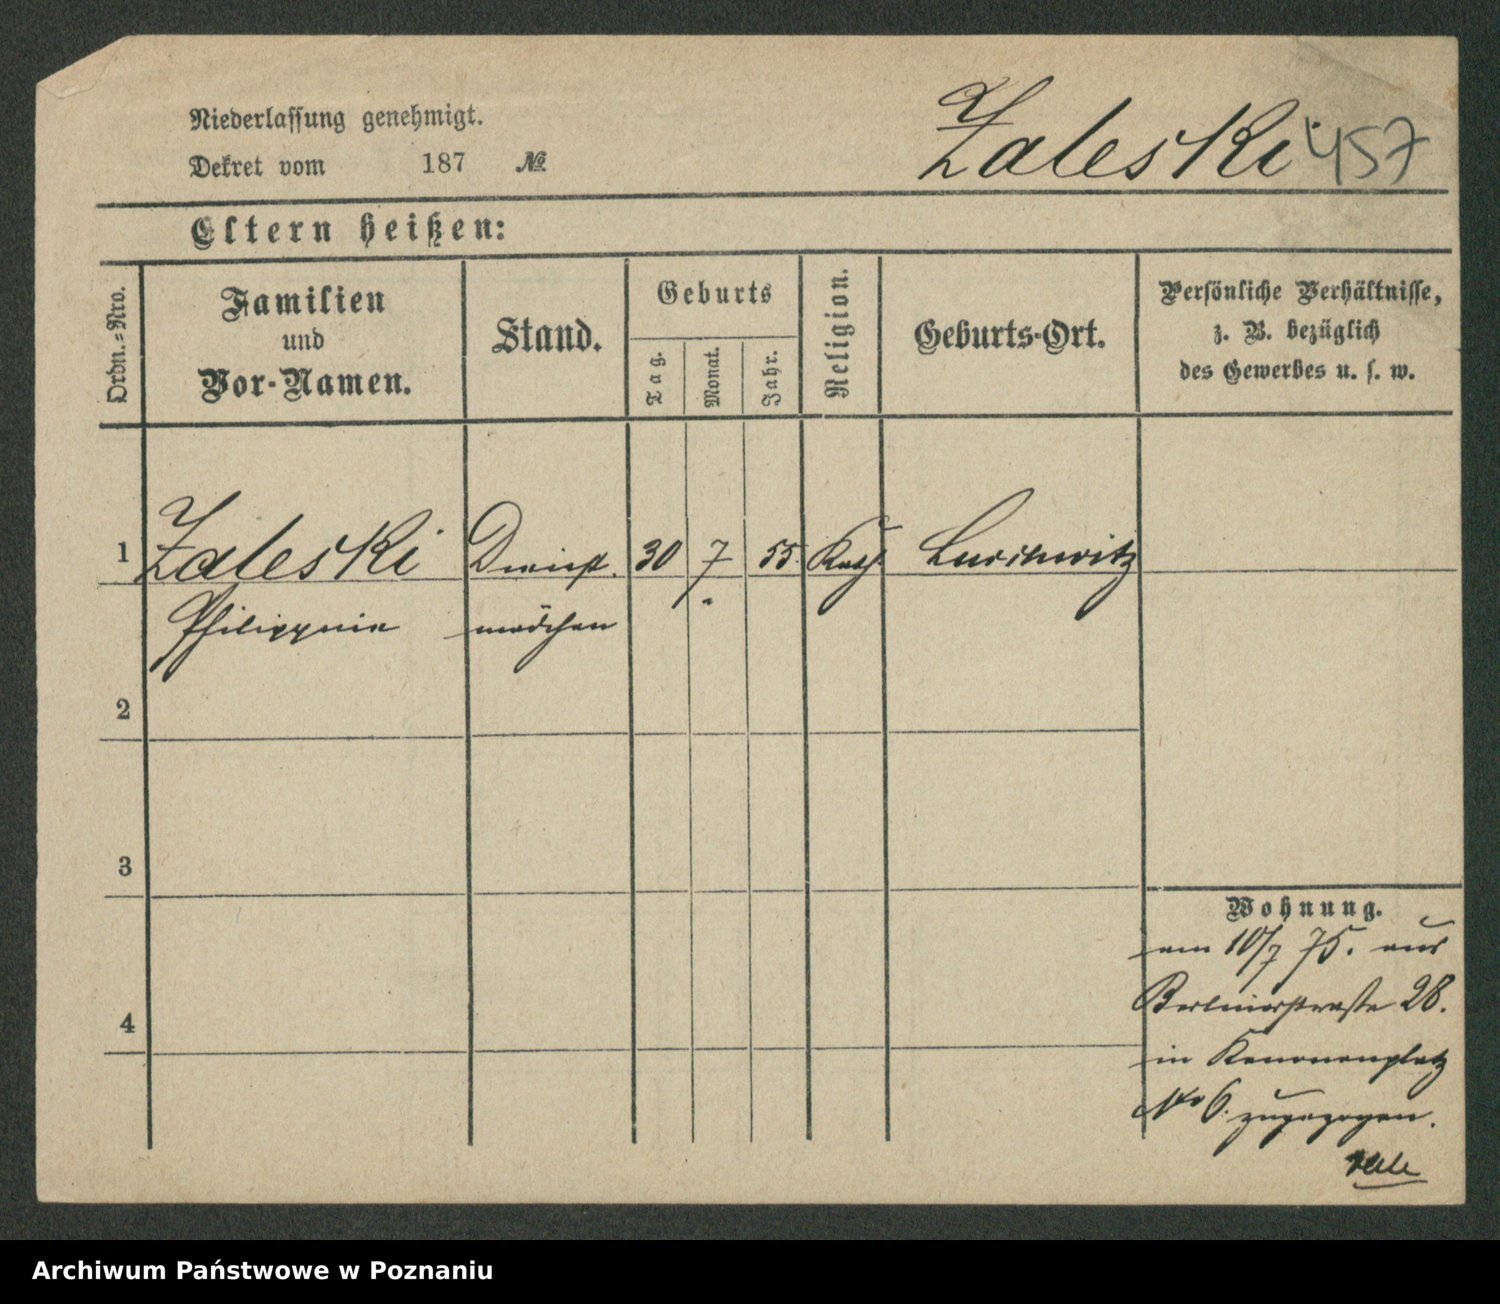 Niederlassung genehmigt.
Dekret vom 187 №
Zaleski 457
Eltern heißen:
Ordn.=Nro.
Familien
und
Vor-Namen.
Stand.
Geburts
Tag.
Monat.
Jahr.
Religion.
Geburts-Ort.
Persönliche Verhältnisse,
z. B. bezüglich
des Gewerbes u. s. w.
1 Zaleski Dienst. 30 7 55. Kath. Luschwitz
Philippine mädchen
2
3
4
Wohnung.
am 10/7 75. aus
Berlinerstraße 28.
in Kanonenplatz
No 6. zugezogen.
Archiwum Państwowe w Poznaniu